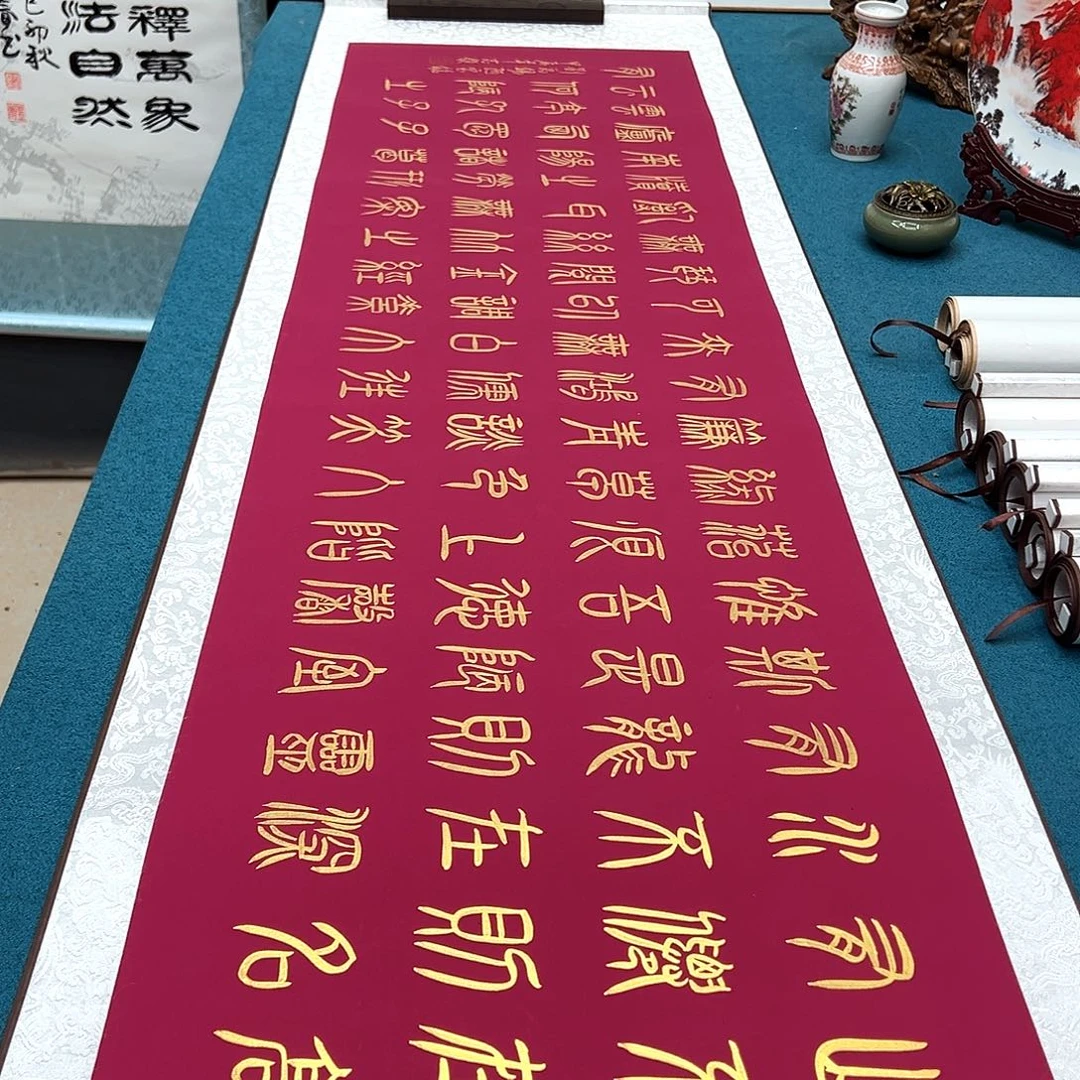 山不在高
有僊則名
水不在深
有龍則靈
斯是陋室
惟吾德馨
苔痕上階
綠草色入
簾青談笑
有鴻儒往
來無白丁
可以調素
琴閱金經
無絲竹之
亂耳無案
牘之勞形
南陽諸葛
廬西蜀子
雲亭孔子
云何陋之
有
釋萬象
法自然
己卯秋